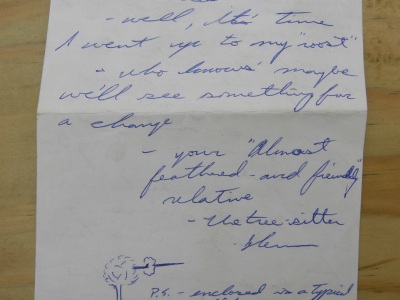 - well, it's time
I went up to my "roost"
- who knows' maybe
we'll see something for
a change
- your "Almost
feathered - and friendly"
relative
- The tree-sitter
- Glenn
P.S. - enclosed is a typical